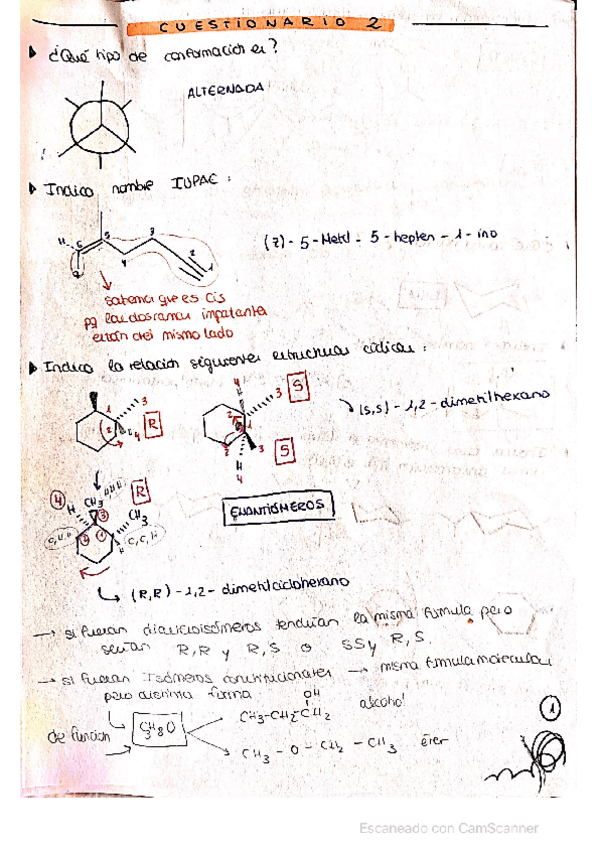 CUESTIONARIO 2
¿Qué tipo de conformación es?
ALTERNADA
Indica nombre IUPAC :
H 6 5 3 2 1
7 4
(Z) - 5 - Metil - 5 - hepten - 1 - ino
sabemos que es cis
pq las dos ramas importantes
están del mismo lado
Indica la relación siguientes estructuras cíclicas :
1 3 R
2 4
4 3 S
1 2 S
3
H
4
(S,S) - 1,2 - dimetilhexano
4 H CH3 H,H,H R
3 CH3
2 1 H C,C,H
ENANTIÓMEROS
(R,R) - 1,2 - dimetilciclohexano
→ si fueran diastereoisómeros tendrían la misma fórmula pero
serían R,R y R,S o SS y R,S.
→ si fueran Isómeros constitucionales → misma fórmula molecular
pero distinta forma
OH
de función C3H8O CH3-CH2-CH2 alcohol
CH3 - O - CH2 - CH3 éter
1
Escaneado con CamScanner